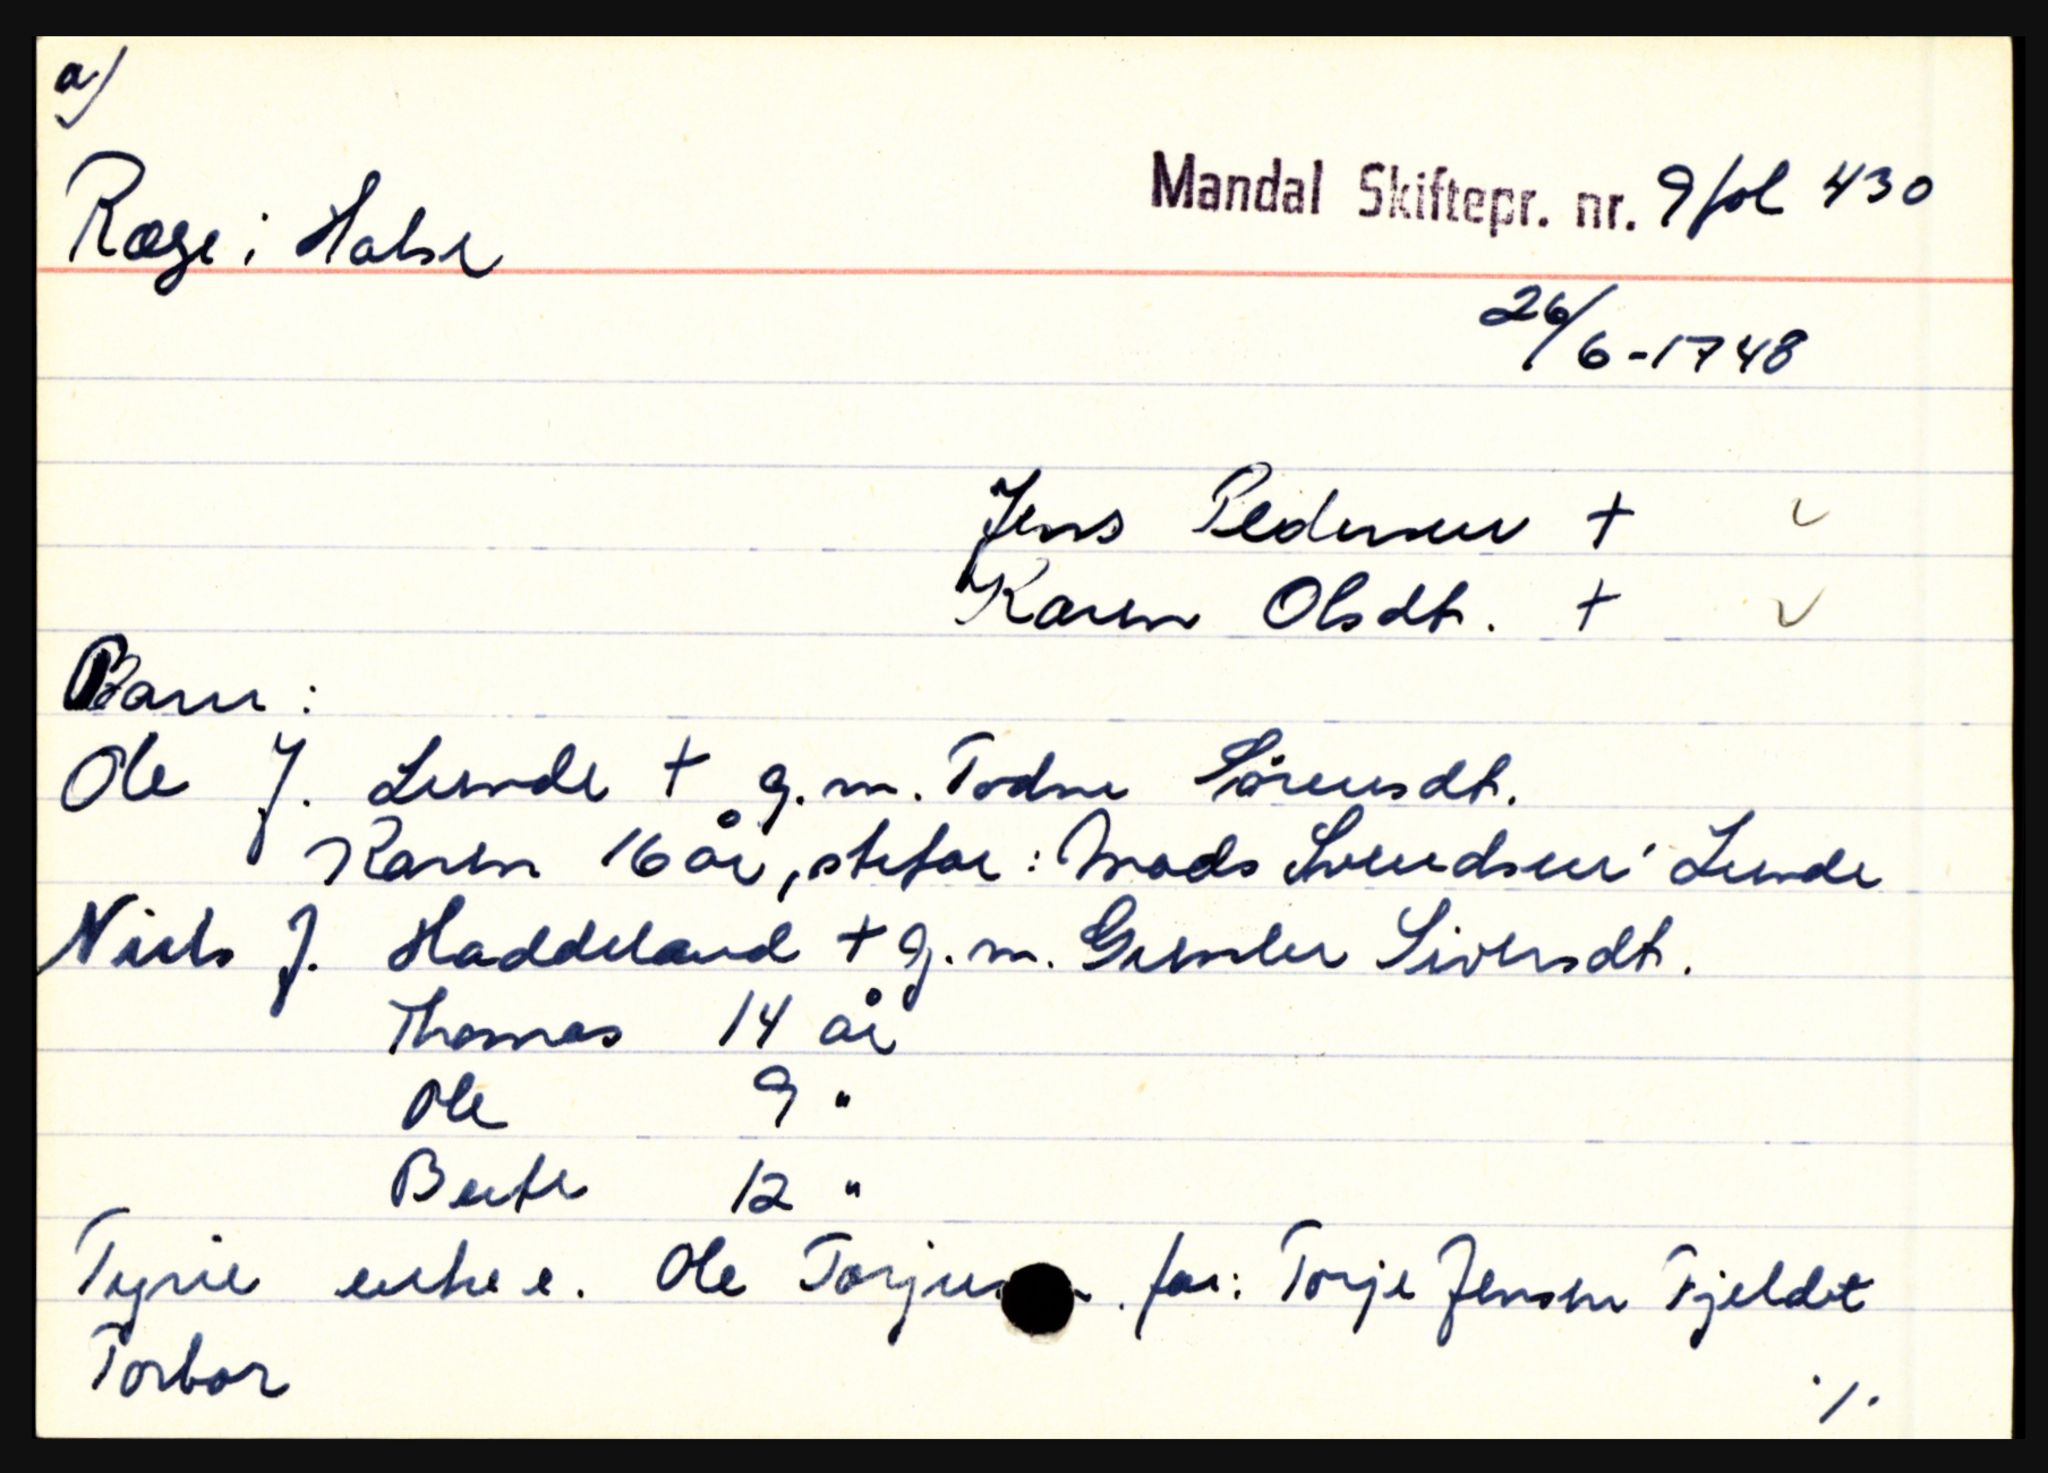 a)
Mandal Skiftepr. nr. 9 fol 430
Ræge i Halse
26/6-1748
Jens Pedersen +
Karen Olsdt. +
Barn:
Ole J. Lunde + g.m. Todne Sörensdt.
Karen 16 år, stefar: Mads Svendsen Lunde
Niels J. Haddeland + g.m. Gunder Siversdt.
Thomas 14 år
Ole 9 "
Berte 12 "
Tyrie enke e. Ole far: Torje Jensen Fjeldet
Torbor
./.